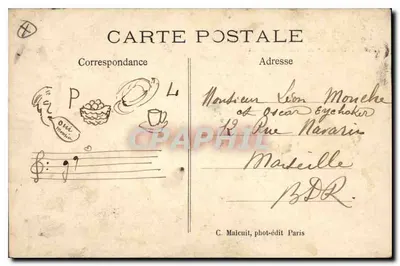 CARTE POSTALE
Correspondance
Adresse
P
L
oui
Monsieur Léon Monche
et Oscar Eychoker
12 Rue Navarin
Marseille
BDR.
CPARAMA
C. Malcuit, phot-édit Paris